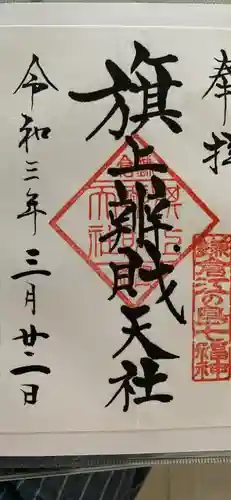 奉拝
旗上辨財天社
令和三年三月廿二日
鎌倉江の島七福神